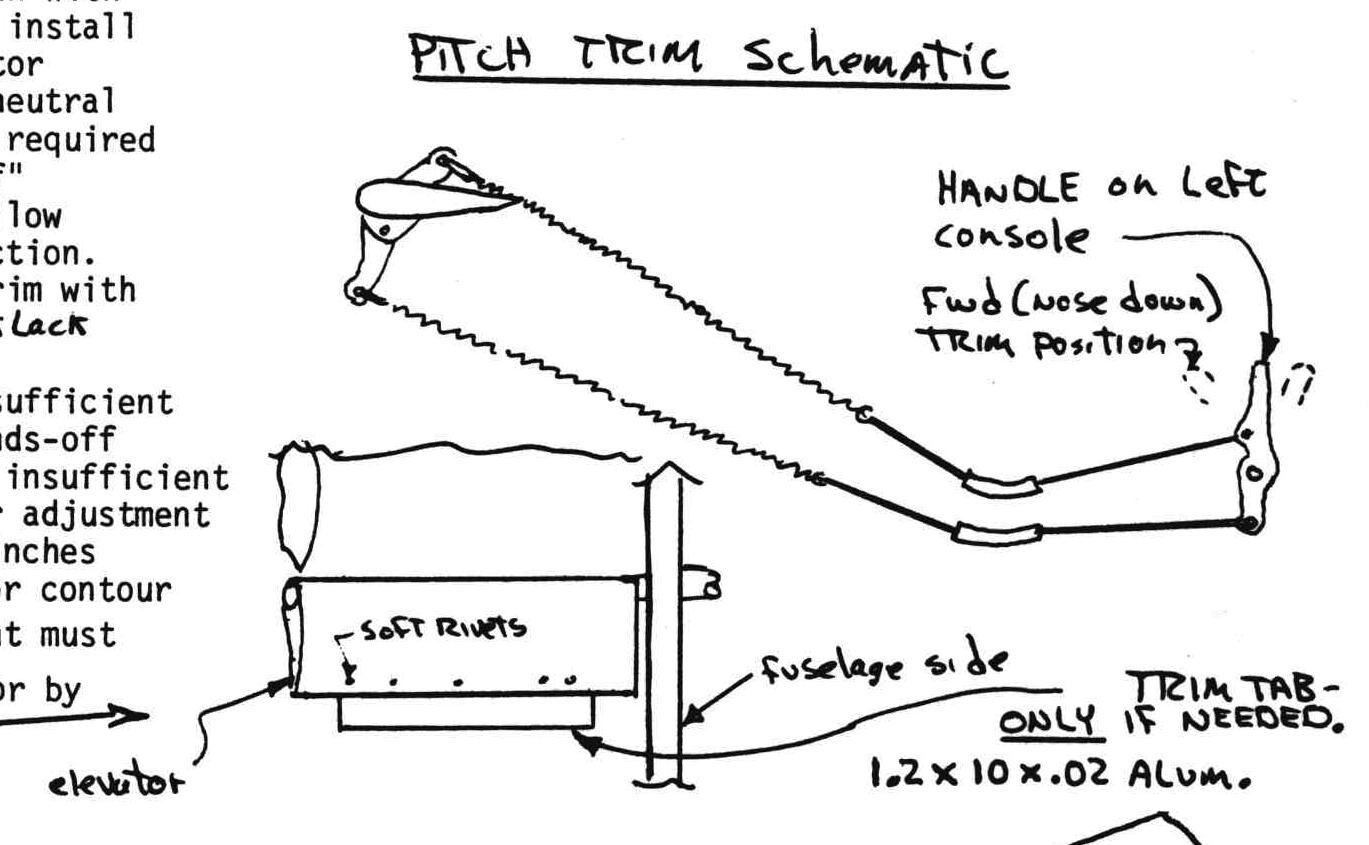 install
neutral
required
low
rim with
slack
sufficient
nds-off
insufficient
r adjustment
nches
or contour
must
or by
PITCH TRIM Schematic
HANDLE on Left
console
Fwd (Nose down)
TRIM position
SOFT RIVETS
fuselage side
TRIM TAB-
ONLY IF NEEDED.
1.2 x 10 x .02 ALUM.
elevator